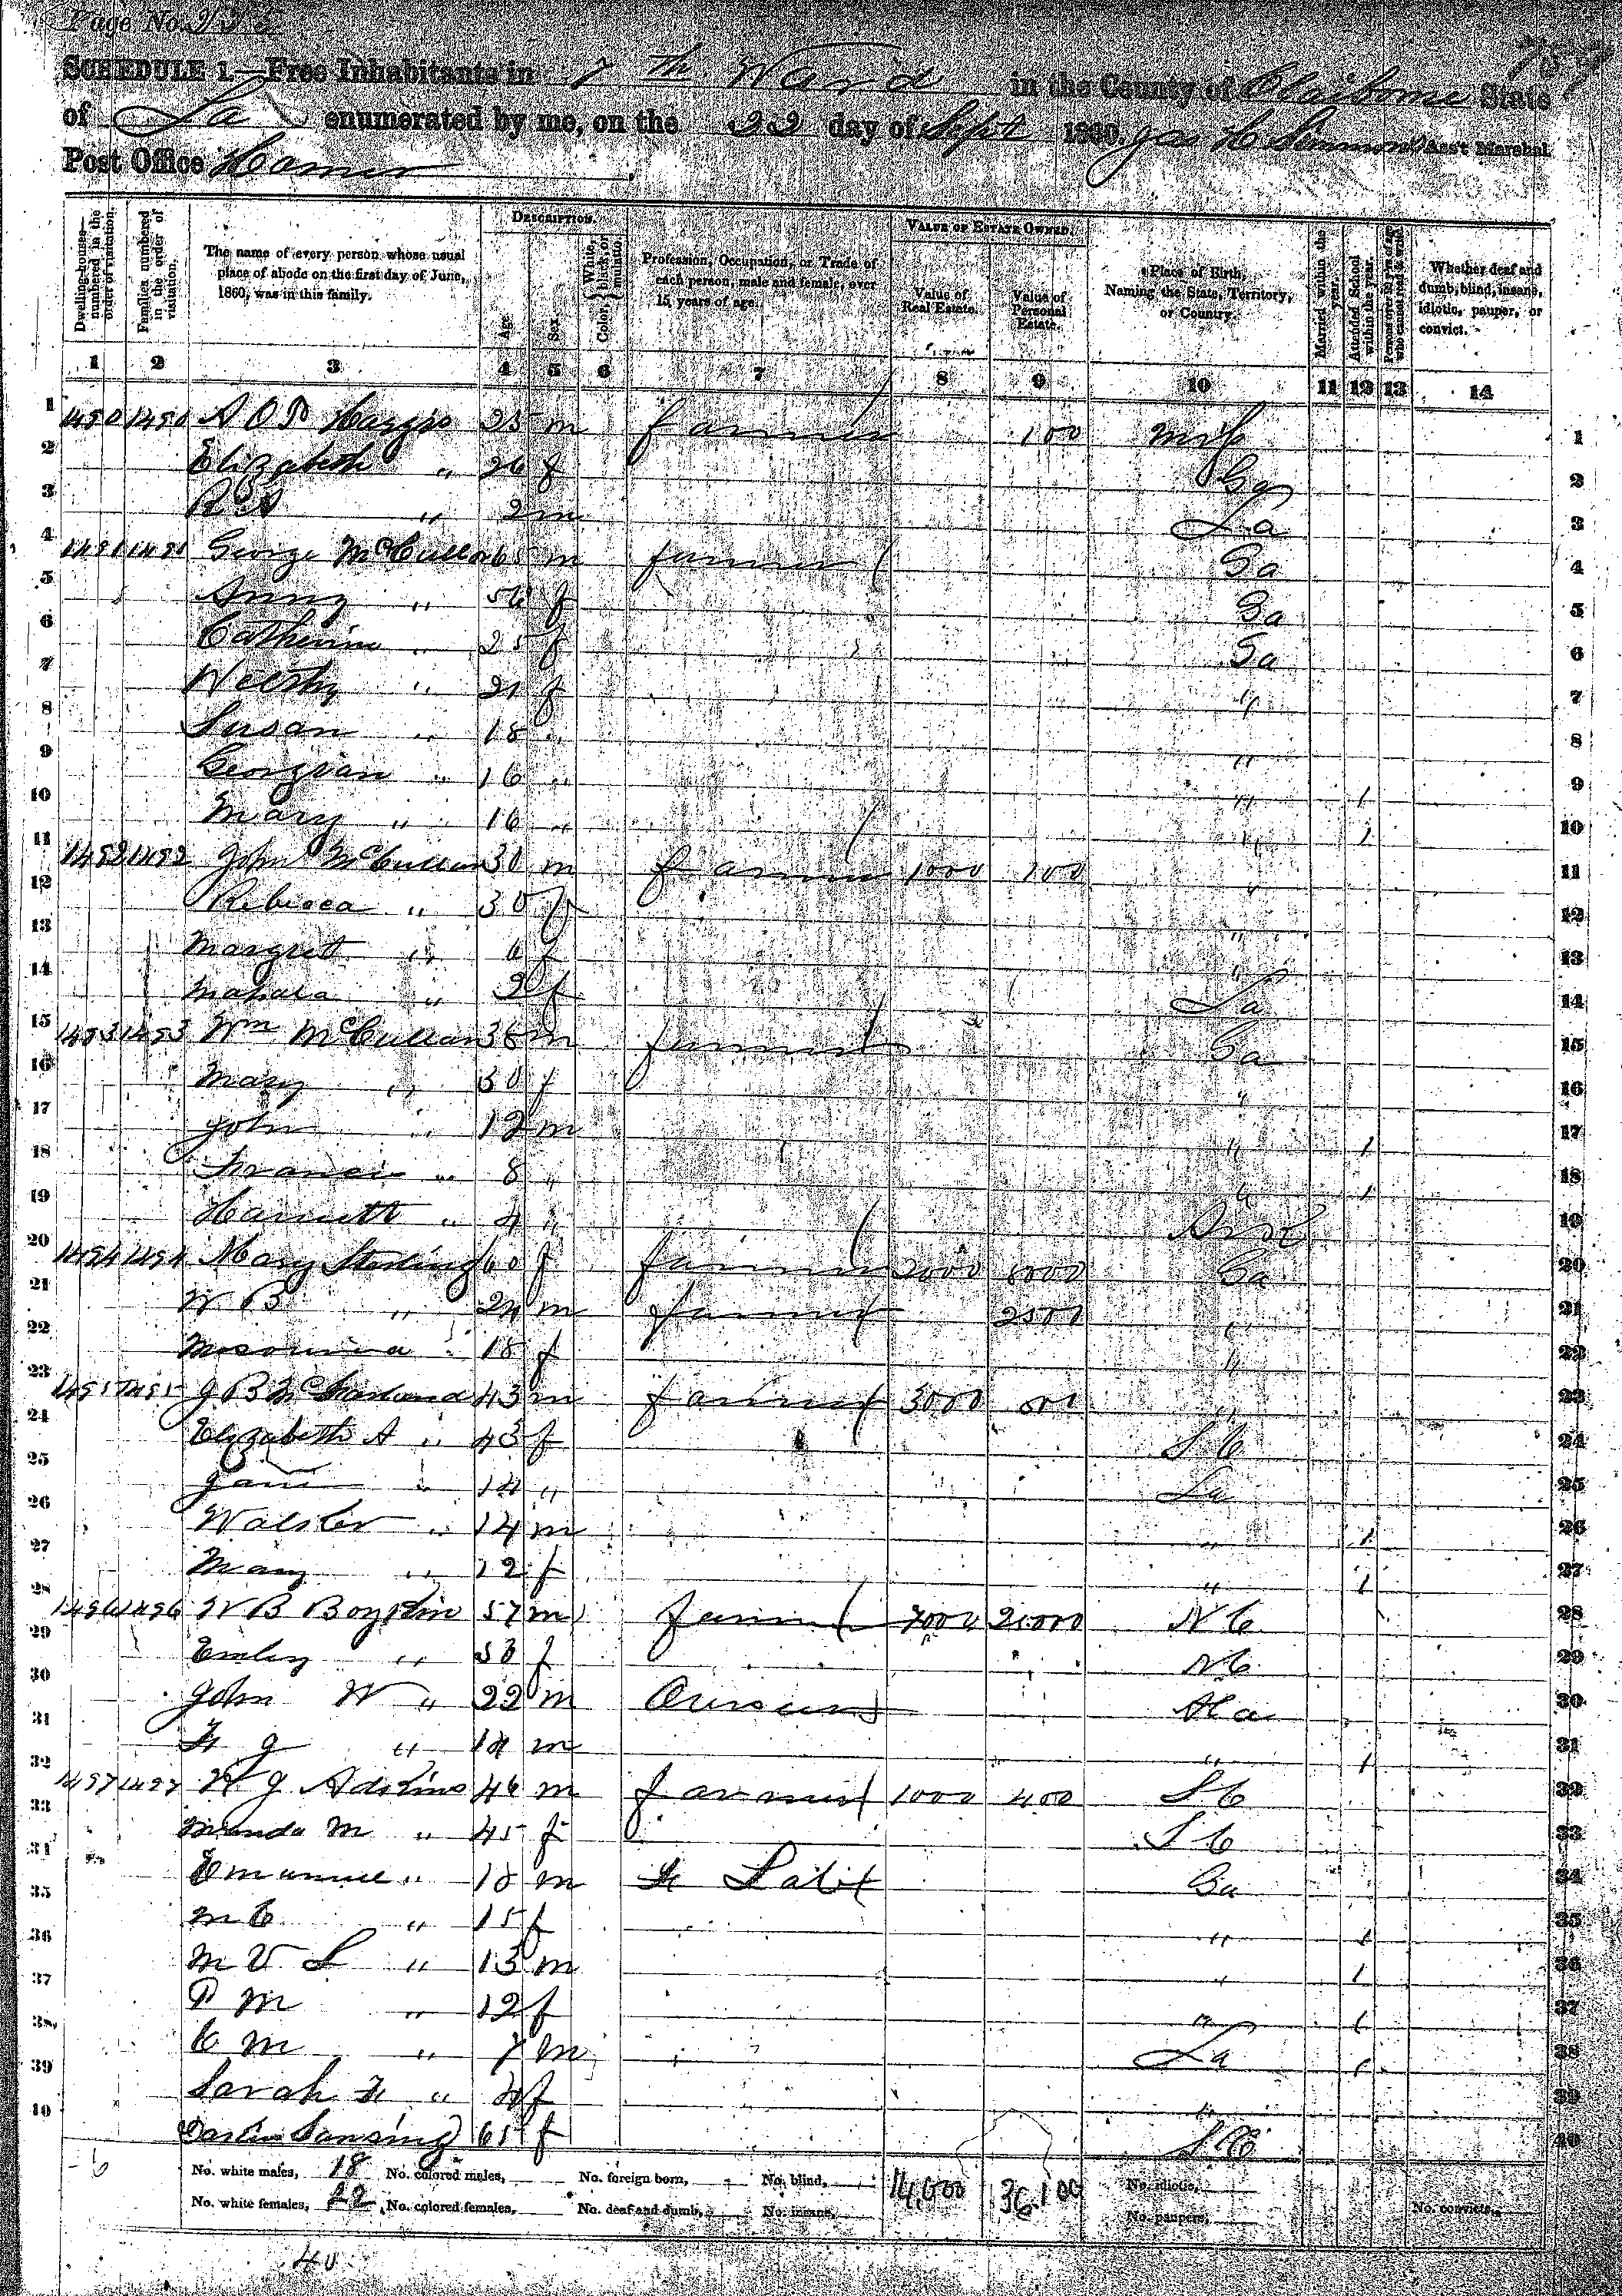 Page No.
SCHEDULE 1.—Free Inhabitants in 7th Ward in the County of Claiborne State
of La enumerated by me, on the 22 day of Sept 1860. Jas C Simmons Ass't Marshal
Post Office Homer
Dwelling-houses—numbered in the order of visitation.
Families numbered in the order of visitation.
The name of every person whose usual place of abode on the first day of June, 1860, was in this family.
DESCRIPTION.
Age.
Sex.
Color, White, black, or mulatto.
Profession, Occupation, or Trade of each person, male and female, over 15 years of age.
VALUE OF ESTATE OWNED.
Value of Real Estate.
Value of Personal Estate.
Place of Birth, Naming the State, Territory, or Country.
Married within the year.
Attended School within the year.
Persons over 20 y'rs of age who cannot read & write.
Whether deaf and dumb, blind, insane, idiotic, pauper, or convict.
1 2 3 4 5 6 7 8 9 10 11 12 13 14
1 1490 1490 A O P 25 m farmer 100 1
2 Elizabeth " 26 f Ga 2
3 " 2 m La 3
4 1491 1491 George McCullan 65 m farmer Ga 4
5 Anny " 56 f Ga 5
6 Catherine " 25 f Ga 6
7 " 21 f " 7
8 Susan " 18 " " 8
9 Georgian " 16 " " 1 9
10 Mary " 16 " " 1 10
11 1492 1492 John McCullan 30 m farmer 1000 100 " 11
12 Rebecca " 30 f " 12
13 Margret " 6 f " 13
14 Mahala " 2 f La 14
15 1493 1493 Wm McCullan 36 m farmer Ga 15
16 Mary " 30 f " 16
17 John " 12 m " 1 17
18 Francis " 8 " " 1 18
19 Harriett " 4 " Ark 19
20 1494 1494 Mary Sterling 60 f farmer 2000 8000 Ga 20
21 W B " 24 m farmer 2500 " 21
22 " 18 f " 22
23 1495 1495 J B McFarland 43 m farmer 3000 " 23
24 Elizabeth A " 43 f S C 24
25 Jane " 14 " La 25
26 Walster " 14 m " 1 26
27 Mary " 12 f " 1 27
28 1496 1496 W B Boykin 57 m farmer 7000 N C 28
29 Emley " 50 f N C 29
30 John W " 22 m Overseer Ala 30
31 F J " 14 m " 1 31
32 1497 1497 W J Adkins 46 m farmer 1000 400 S C 32
33 M " 45 f S C 33
34 Emanuel " 18 m F Labor Ga 34
35 M C " 15 f " 1 35
36 M V L " 13 m " 1 36
37 P M " 12 f " 1 37
38 C M " 7 m La 1 38
39 Sarah F " 4 f " 39
40 Lansing 65 f S C 40
6 No. white males, 18 No. colored males, No. foreign born, No. blind, 14,000 36,100 No. idiotic,
No. white females, 22 No. colored females, No. deaf and dumb, No. insane, No. paupers, No. convicts,
40